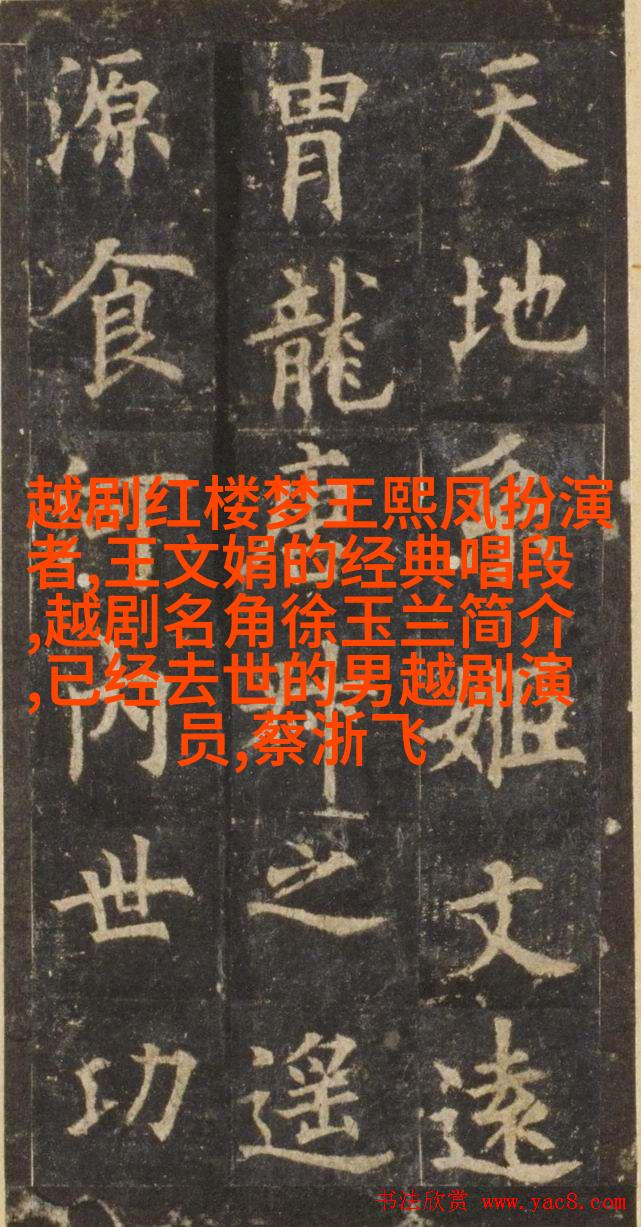 天地姬文遠
胄龍之遥
源食内世功
越剧红楼梦王熙凤扮演
者,王文娟的经典唱段
,越剧名角徐玉兰简介
,已经去世的男越剧演
员,蔡浙飞
书法欣赏 www.yac8.com